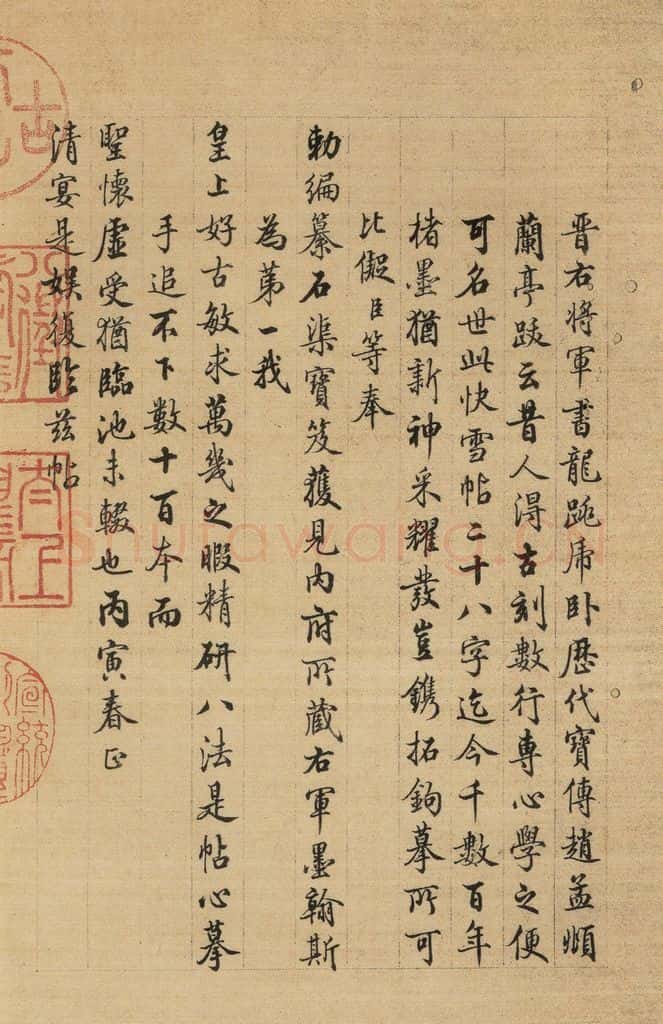 晋右将軍書龍跳虎卧歴代寶傳趙孟頫
蘭亭跋云昔人淂古刻數行專心學之便
可名世此快雪帖二十八字迄今千數百年
楮墨猶新神采耀發豈鐫拓鉤摹所可
比儗臣等奉
勅編纂石渠寶笈獲見内府所蔵右軍墨翰斯
為第一我
皇上好古敏求萬幾之暇精研八法是帖心摹
手追不下數十百本而
聖懷虛受猶臨池未輟也丙寅春正
清宴是娱復臨兹帖